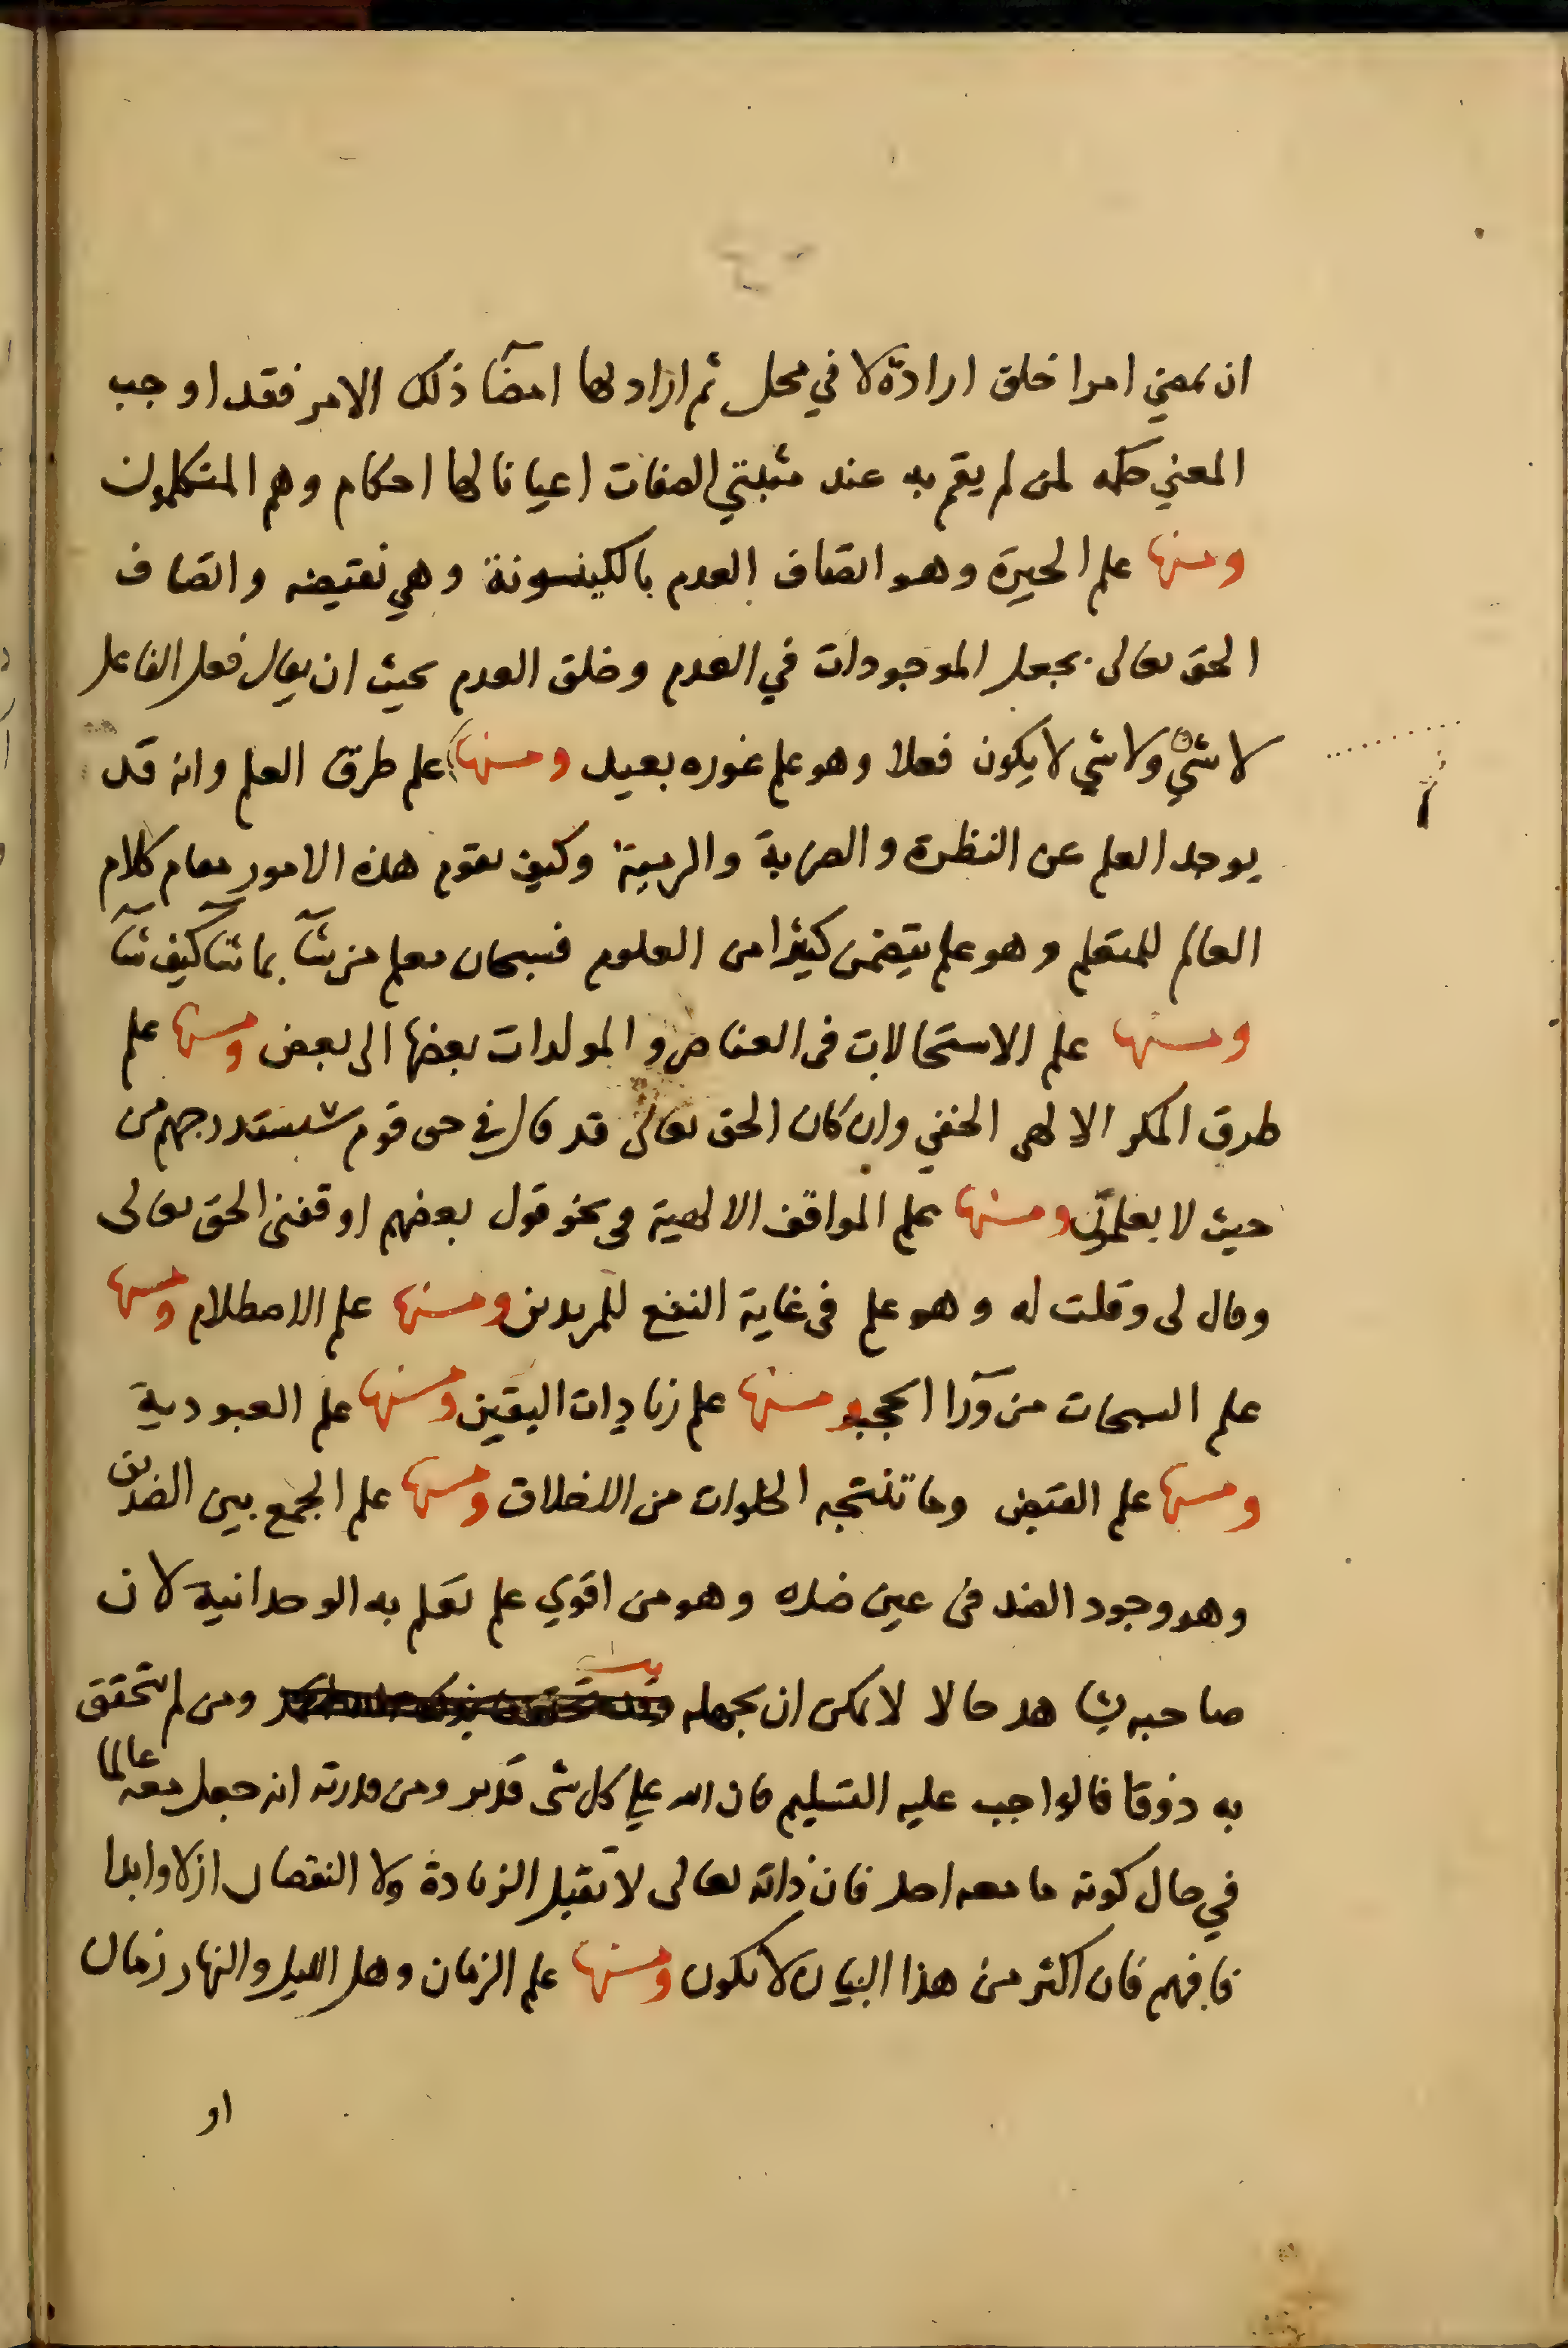 ان يمضي امرا خلق ارادة لا في محل ثم اراد بها امضآ ذلك الامر فقد اوجب
المعني حكمه لمن لم يقم به عند مثبتي الصفات اعيانا لها احكام وهم المتكلمون
ومنها علم الحيرة وهو اتصاف العدم بالكينونة وهي نقيضه واتصاف
الحق تعالى بجعل الموجودات في العدم وخلق العدم بحيث ان يقال فعل الفاعل
لا شي ولا شي لا يكون فعلا وهو علم غوره بعيد ومنها علم طرق العلم وانه قد
يوجد العلم عن النظرة والضربة والرمية وكيف تقوم هذه الامور مقام كلام
العالم للمتعلم وهو علم يتضمن كثيرا من العلوم فسبحان معلم من شآ بما شآ كيف شآ
ومنها علم الاستحالات في العناصر والمولدات بعضها الى بعض ومنها علم
طرق المكر الالهي الخفي وان كان الحق تعالى قد قال في حق قوم سنستدرجهم من
حيث لا يعلمون ومنها علم المواقف الالهية في نحو قول بعضهم اوقفني الحق تعالى
وقال لي وقلت له وهو علم في غاية النفع للمريدين ومنها علم الاصطلام ومنها
علم السبحات من ورآ الحجب ومنها علم زيادات اليقين ومنها علم العبودية
ومنها علم القبض وما تنتجه الخلوات من الاخلاق ومنها علم الجمع بين الضدين
وهو وجود الضد في عين ضده وهو من اقوي علم تعلم به الوحدانية لان
صاحبه يشاهد حالا لا يمكن ان يجهله ومن لم يتحقق
به ذوقا فالواجب عليه التسليم فان الله علي كل شي قدير ومن قدرته انه جعل معه عالما
في حال كونه ما معه احد فان ذاته تعالى لا تقبل الزيادة ولا النقصان ازلا وابدا
فافهم فان اكثر من هذا البيان لا يكون ومنها علم الزمان وهل الليل والنهار زمان
او